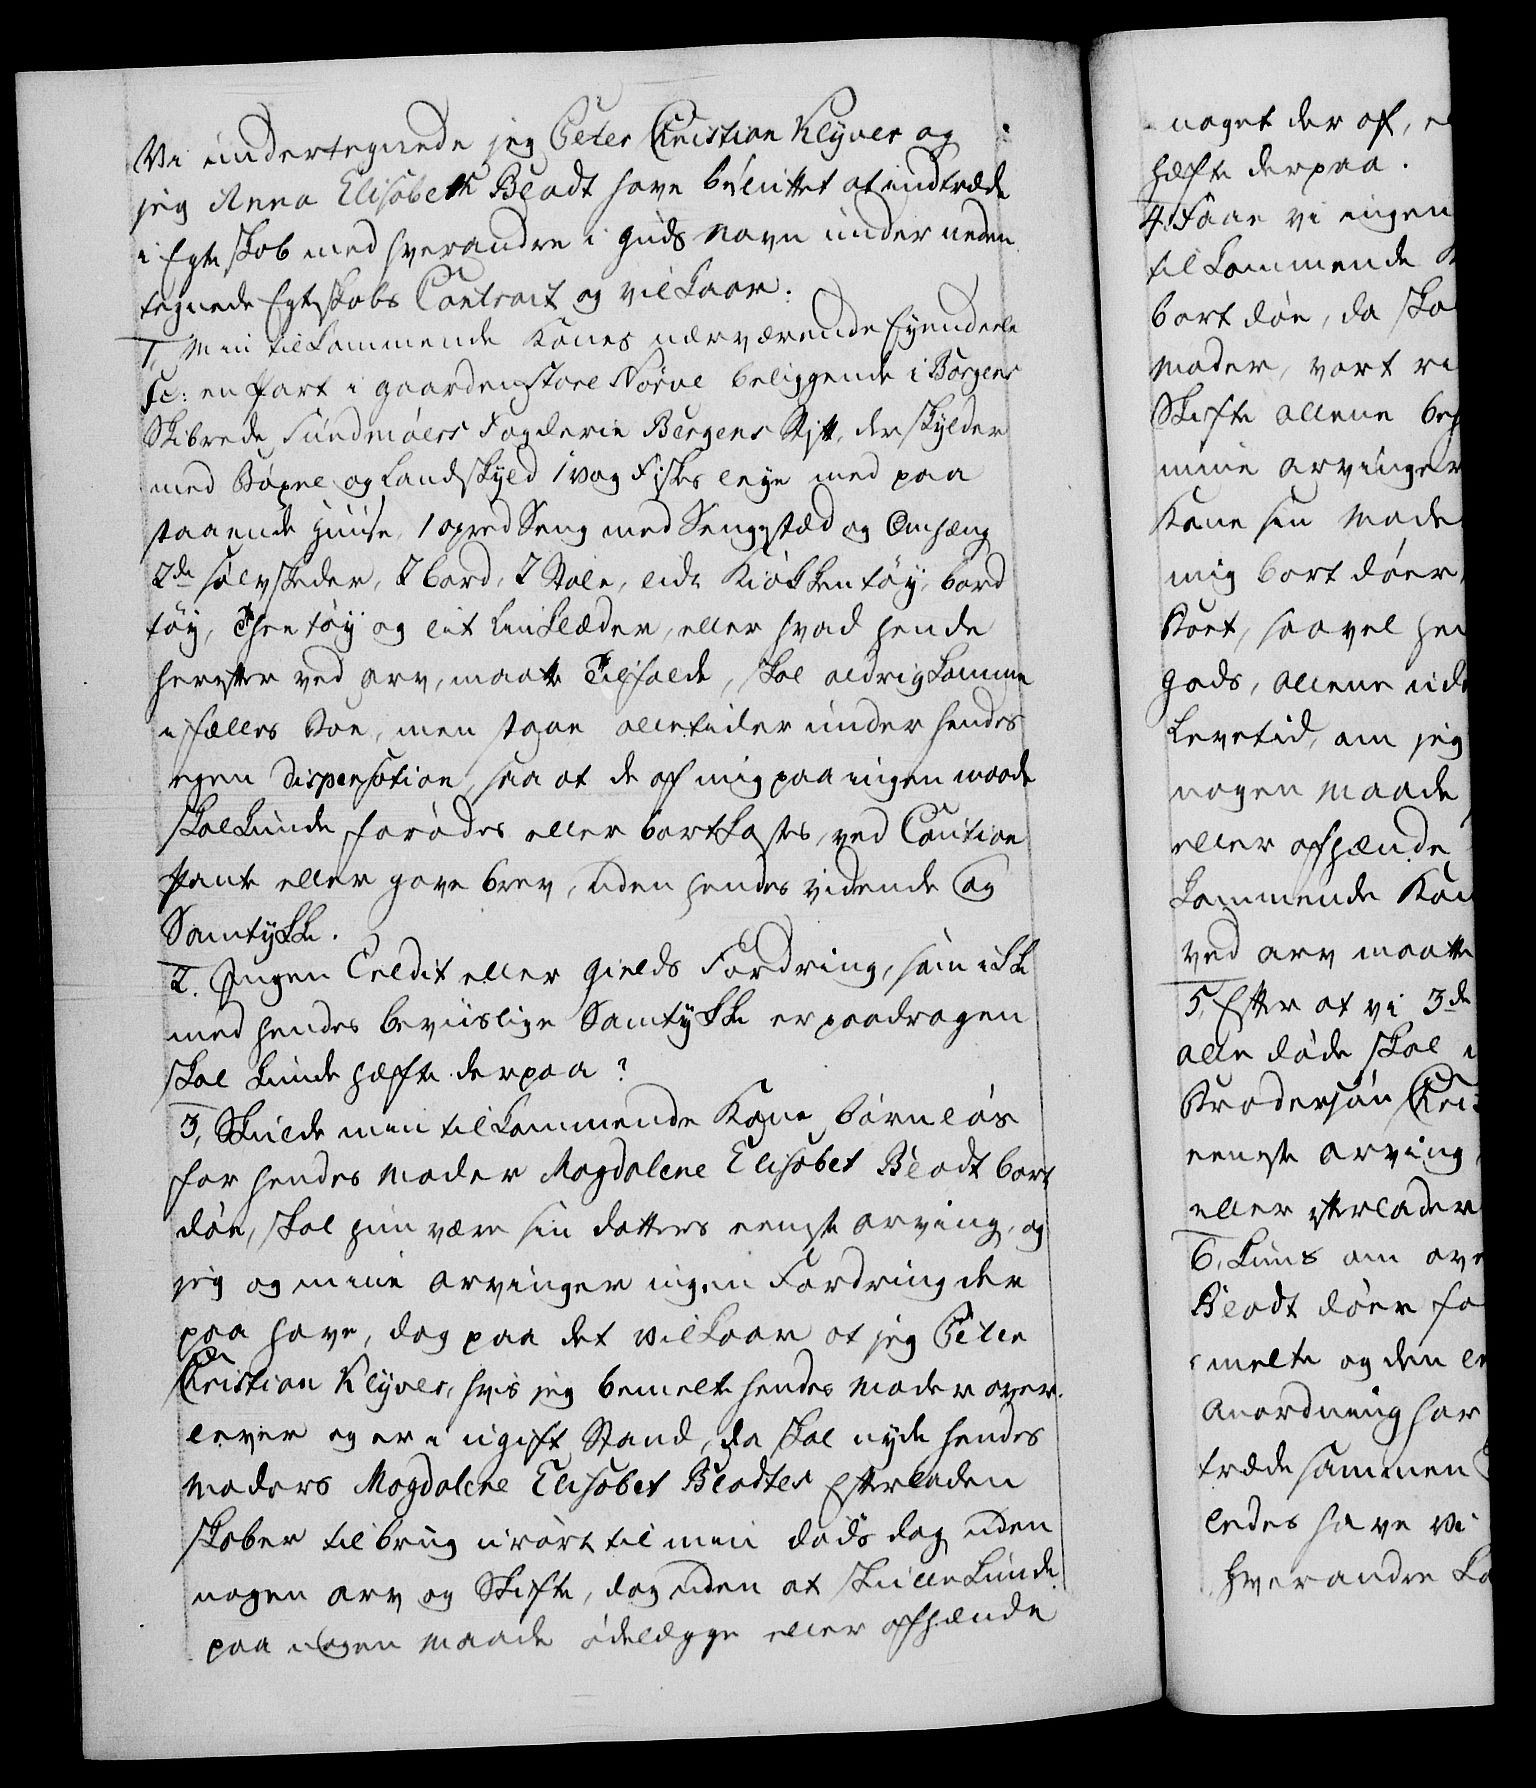 Vi undertegnede jeg Peter Christian Klÿver og
jeg Anna Elisabeth Bladt have besluttet at indtræde
i Egteskab med hverandre i Guds Navn under neden
tegnede Egteskabs Contract og vilkaar:
1, Min tilkommende Kones nærværende Eyendeele
Sc: en Part i gaarden store Nørve beliggende i Borgens
Skibrede Sundmøers Fogderie Bergens Stift, der skylder
med Bøxel og Landskyld 1 vog Fiskes leye med paa
staaende Huuse, 1 opred Seng med Sengested og Omhæng
2de sølvskeder, 2 bord, 2 Stole, lidt Kiøkkentøÿ, bord
tøÿ, Thee tøÿ og lit Linklæder, eller hvad hende
herefter ved arv, maatte Tilfalde, skal aldrig komme
i fælles Boe, men staae alletider under hendes
egen dispensation, saa at de af mig paa ingen maade
skal kunde forødes eller bortkastes, ved Caution
Pante eller gave brev, uden hendes vidende og
Samtÿkke.
2. Ingen Credit eller Gields Fordring, som ikke
med hendes beviislige Samtÿkke er paadragen
skal kunde hæfte derpaa?
3, Skulde min tilkommende Kone barnløs
for hendes Moder Magdalene Elisabet Blodt bort
døe, skal hun være sin datters eeneste arving, og
jeg og mine arvinger ingen Fordring der
paa have, dog paa det vilkaar at jeg Peter
Christian Klÿver, hvis jeg bemelte hendes Moder over-
lever og er i ugift Stand, da skal nyde hendes
Moders Magdalene Elisabet Blodtes Efterladen
skaber til brug urørt til min døds dag uden
nogen arv og Skifte, dog uden at skulle kunde
paa nogen maade ødelægge eller afhænde
noget der af, e
hæfte derpaa.
4. Faae vi ingen
tilkommende K
bort døe, da ska
Moder, vort
Skifte allene
mine arvinger
Kone sin Mode
mig bort døer,
Boet, saavel hen
gods, allene
Levetid, om jeg
nogen Maade
eller afhænde
kommende Kon
ved arv maatte
5, Efter at vi 3de
alle døde skal i
Brodersøn Chri
eeneste arving,
eller efterlader
6, Kuns om
Blodt døer fo
melte og den
Anordning har
træde sammen
ledes have vi
Hverandre